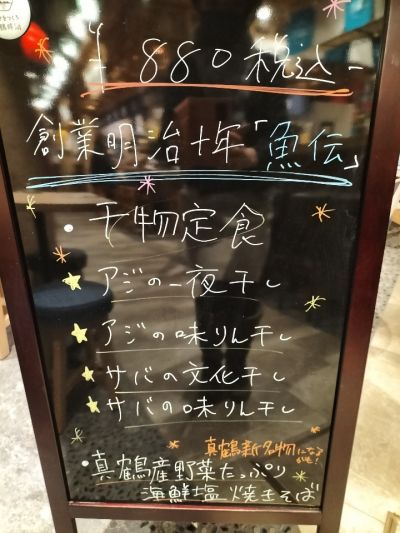 ¥880税込-
創業明治十年「魚伝」
・干物定食
アジの一夜干し
アジの味りん干し
サバの文化干し
サバの味りん干し
真鶴新名物になるかも!
・真鶴産野菜たっぷり
海鮮塩焼きそば